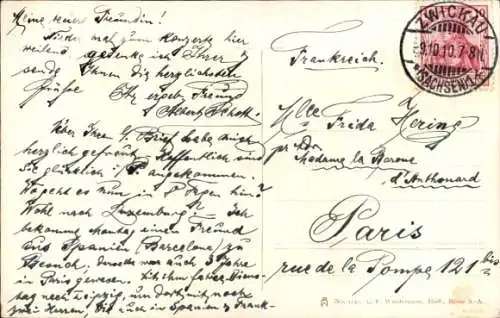 Meine teure Freundin!
Wieder mal zum Konzerte hier
weilend gedenke ich Ihrer &
sende Ihnen die herzlichsten
Grüsse
Ihr ergeb. Freund
Albert
Über Ihren Brief habe mich
herzlich gefreut. Hoffentlich sind
Sie glücklich i/P. angekommen.
Wo geht es nun in 8 Tagen hin?
Wohl nach Luxemburg? Ich
bekomme Montag einen Freund
aus Spanien (Barcelona) zu
Besuch. Derselbe war auch 3 Jahre
in Paris gewesen. Ich fahre Diens-
tag nach Leipzig, um dort mit noch
zwei Herren, die auch in Spanien & Frank-
ZWICKAU
9.10.10.7-8N
(SACHSEN)1
Frankreich.
Mlle Frida Hering
pr. Adr.
Madame la Baronne
d'Anthouard
Paris
rue de la Pompe, 121 bis